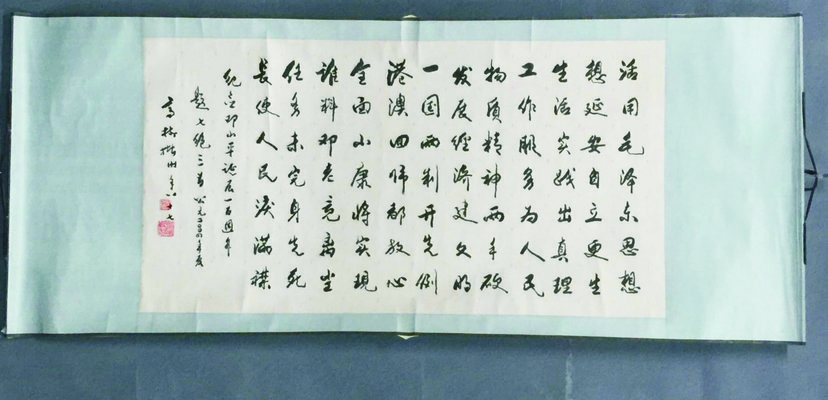 活用毛泽东思想
想延安自立更生
生活实践出真理
工作服务为人民
物质精神两手硬
发展经济建文明
一国两制开先例
港澳回归都放心
全面小康将实現
谁料邓老竟离尘
任务未完身先死
長使人民泪满襟
纪念邓小平诞辰一百周年
题七绝三首 公元二〇〇四年夏
高 年八十七